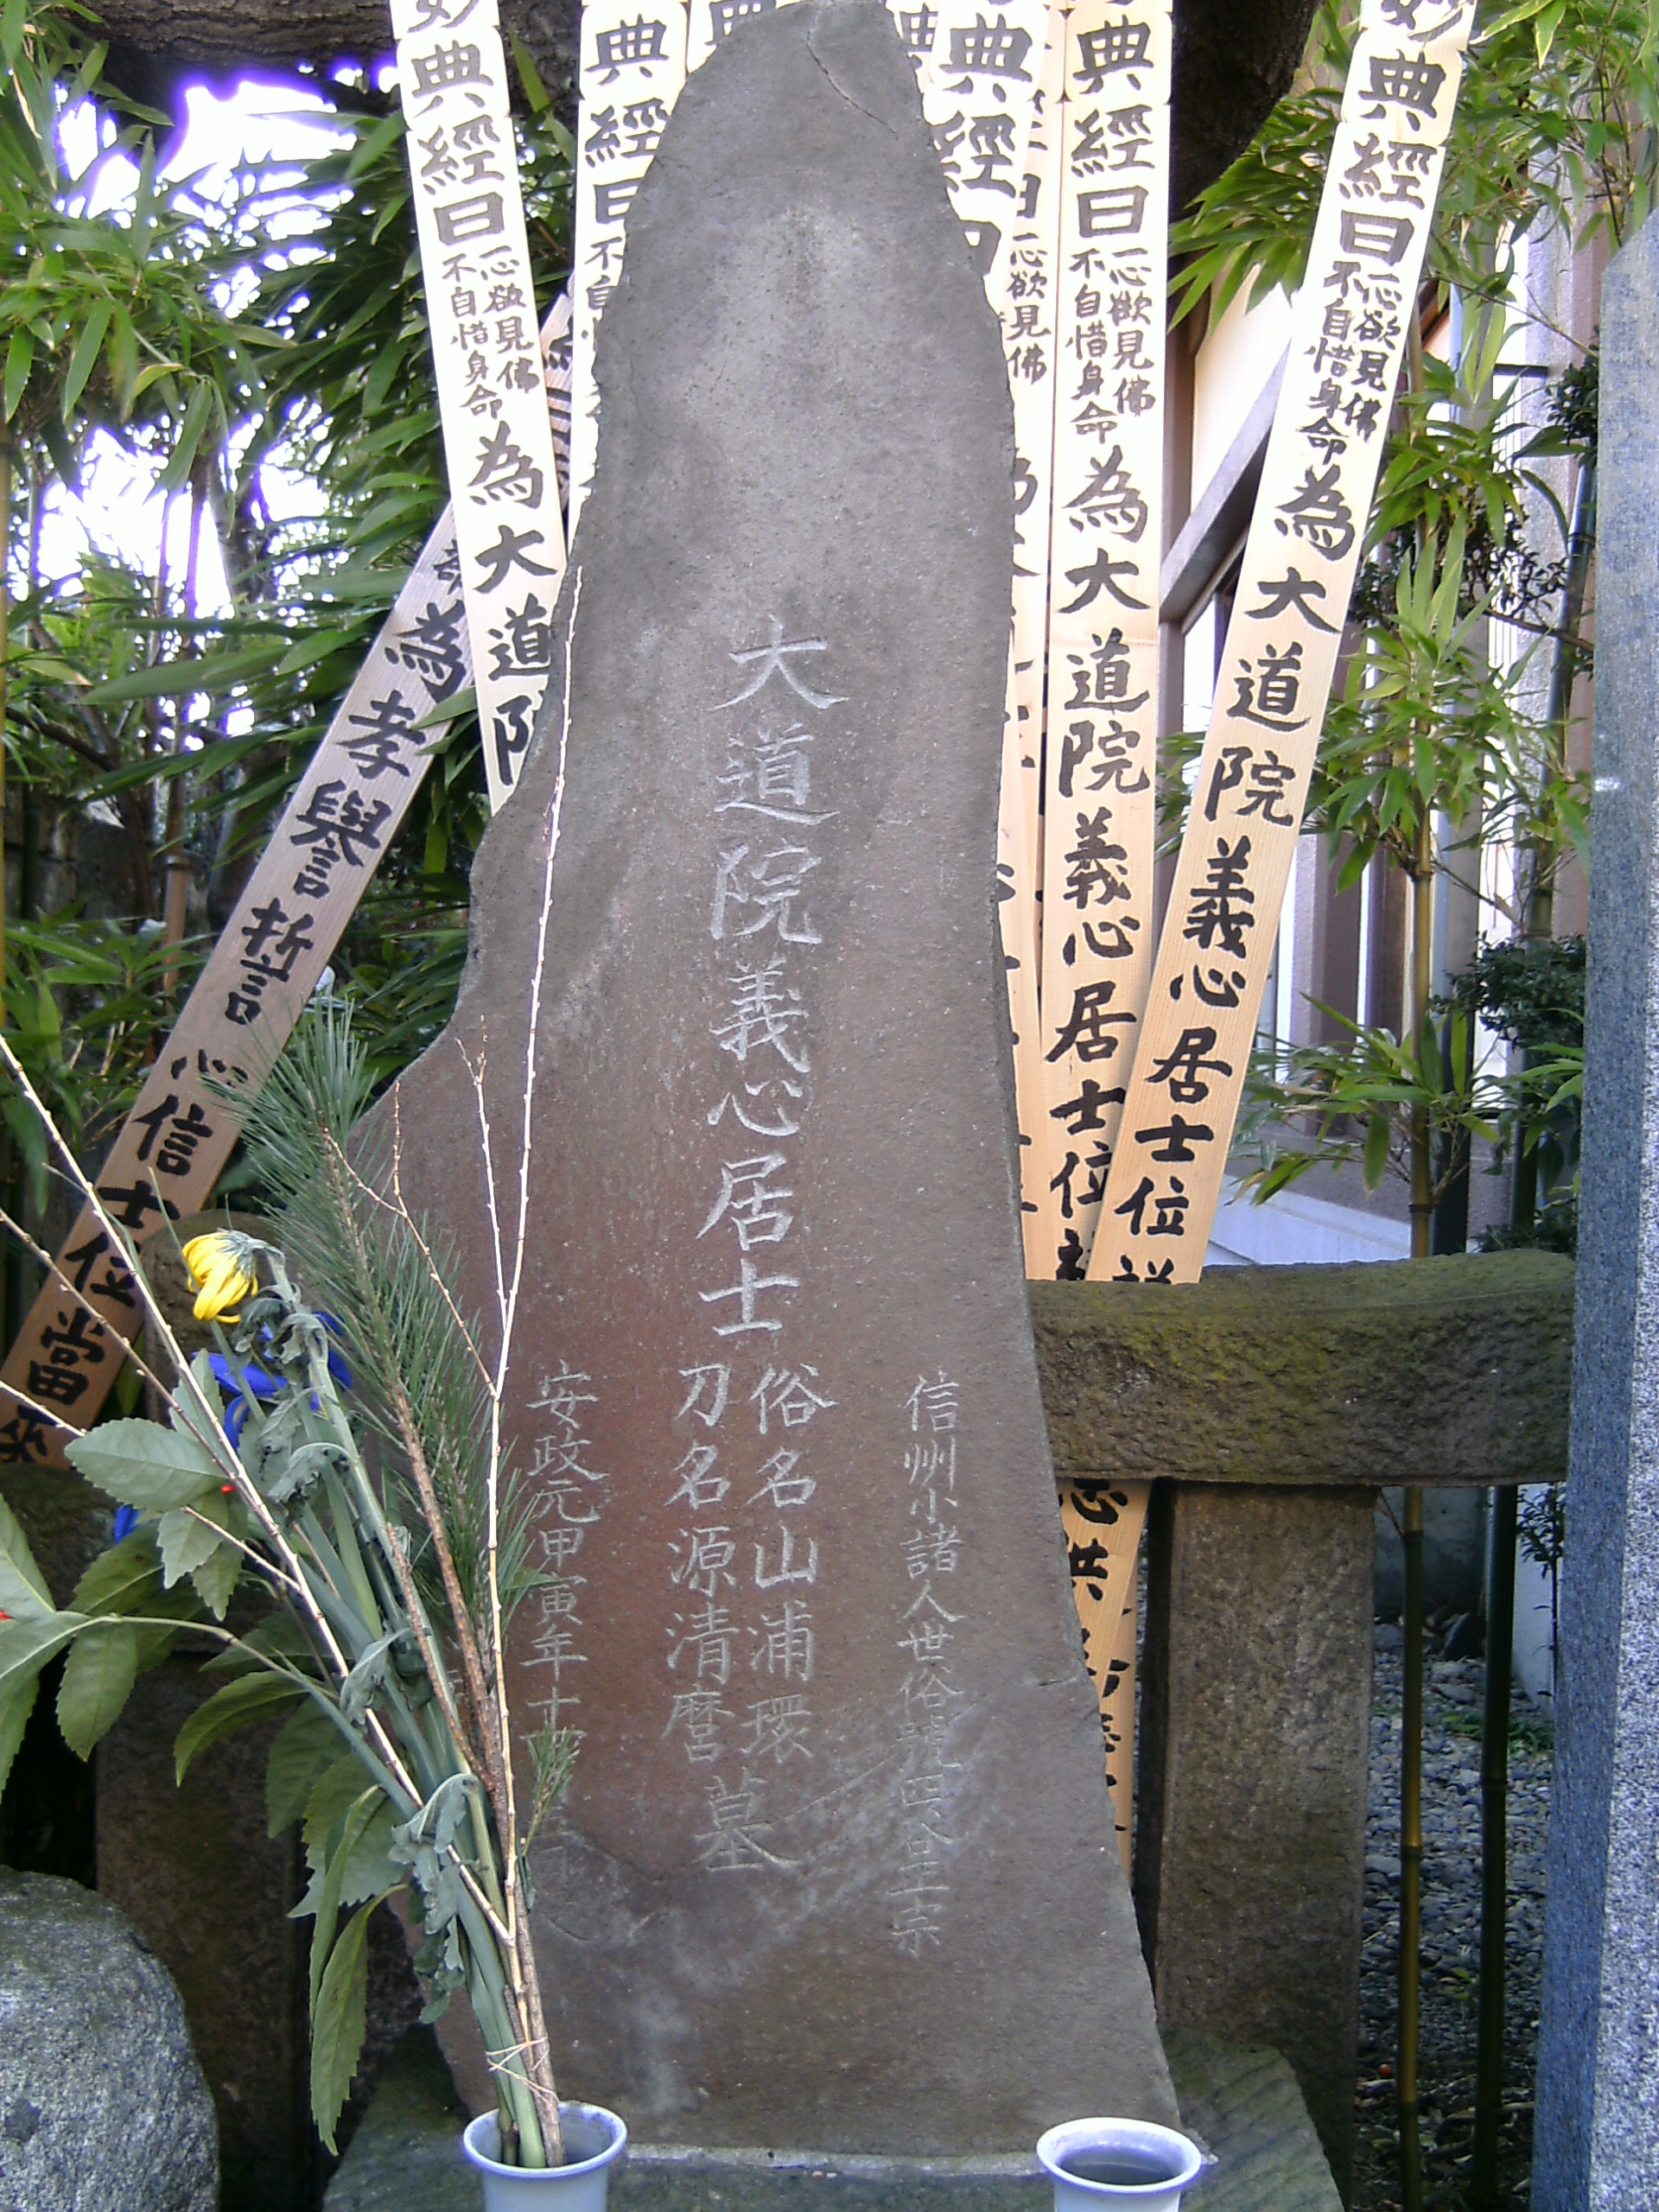 大道院義心居士
俗名山浦環
刀名源清麿
墓
信州小諸人世俗號四谷正宗
安政元甲寅年十
典經曰
一心欲見佛
不自惜身命
為大道院義心居士位
妙典經曰
一心欲見佛
不自惜身命
為大道院義心居士位
妙典經曰
一心欲見佛
不自惜身命
為大道院
典經曰
典經曰
一心欲見佛
為孝譽哲言心信士位當